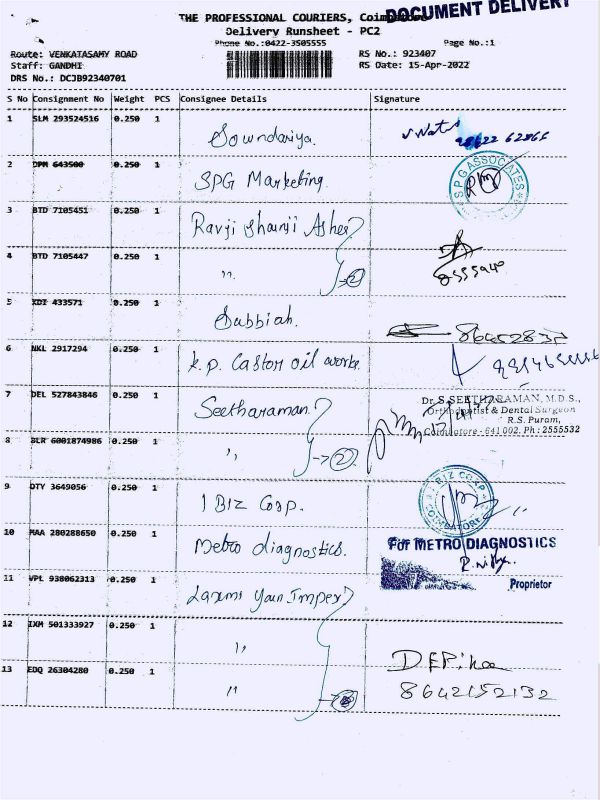 DOCUMENT DELIVERY
THE PROFESSIONAL COURIERS, Coimbatore
Delivery Runsheet - PC2
Phone No.:0422-3505555 Page No.:1
Route: VENKATASAMY ROAD RS No.: 923407
Staff: GANDHI RS Date: 15-Apr-2022
DRS No.: DCJB92340701
S No Consignment No Weight PCS Consignee Details Signature
1 SLM 293524516 0.250 1 Sowndariya.
2 DPM 643500 0.250 1 SPG Marketing
SPG ASSOCIATES
3 BTD 7105451 0.250 1 Ravji Shamji Asher
4 BTD 7105447 0.250 1 ,,
2
5 KDI 433571 0.250 1 Subbiah.
6 NKL 2917294 0.250 1 K.P. Castor oil works.
7 DEL 527843846 0.250 1 Seetharaman.
Dr. S.SEETHARAMAN, M.D.S.,
Orthodontist & Dental Surgeon
R.S. Puram,
Coimbatore - 641 002. Ph : 2555532
8 BLR 6001874986 0.250 1 ,,
2
9 DTY 3649056 0.250 1 I BIZ Corp.
I BIZ CORP
COIMBATORE
10 MAA 280288650 0.250 1 Metro diagnostics.
For METRO DIAGNOSTICS
Proprietor
11 VPL 938062313 0.250 1 Laxmi Yarn Impex
12 IXM 501333927 0.250 1 ,,
13 EDQ 26304280 0.250 1 ,,
8642152132